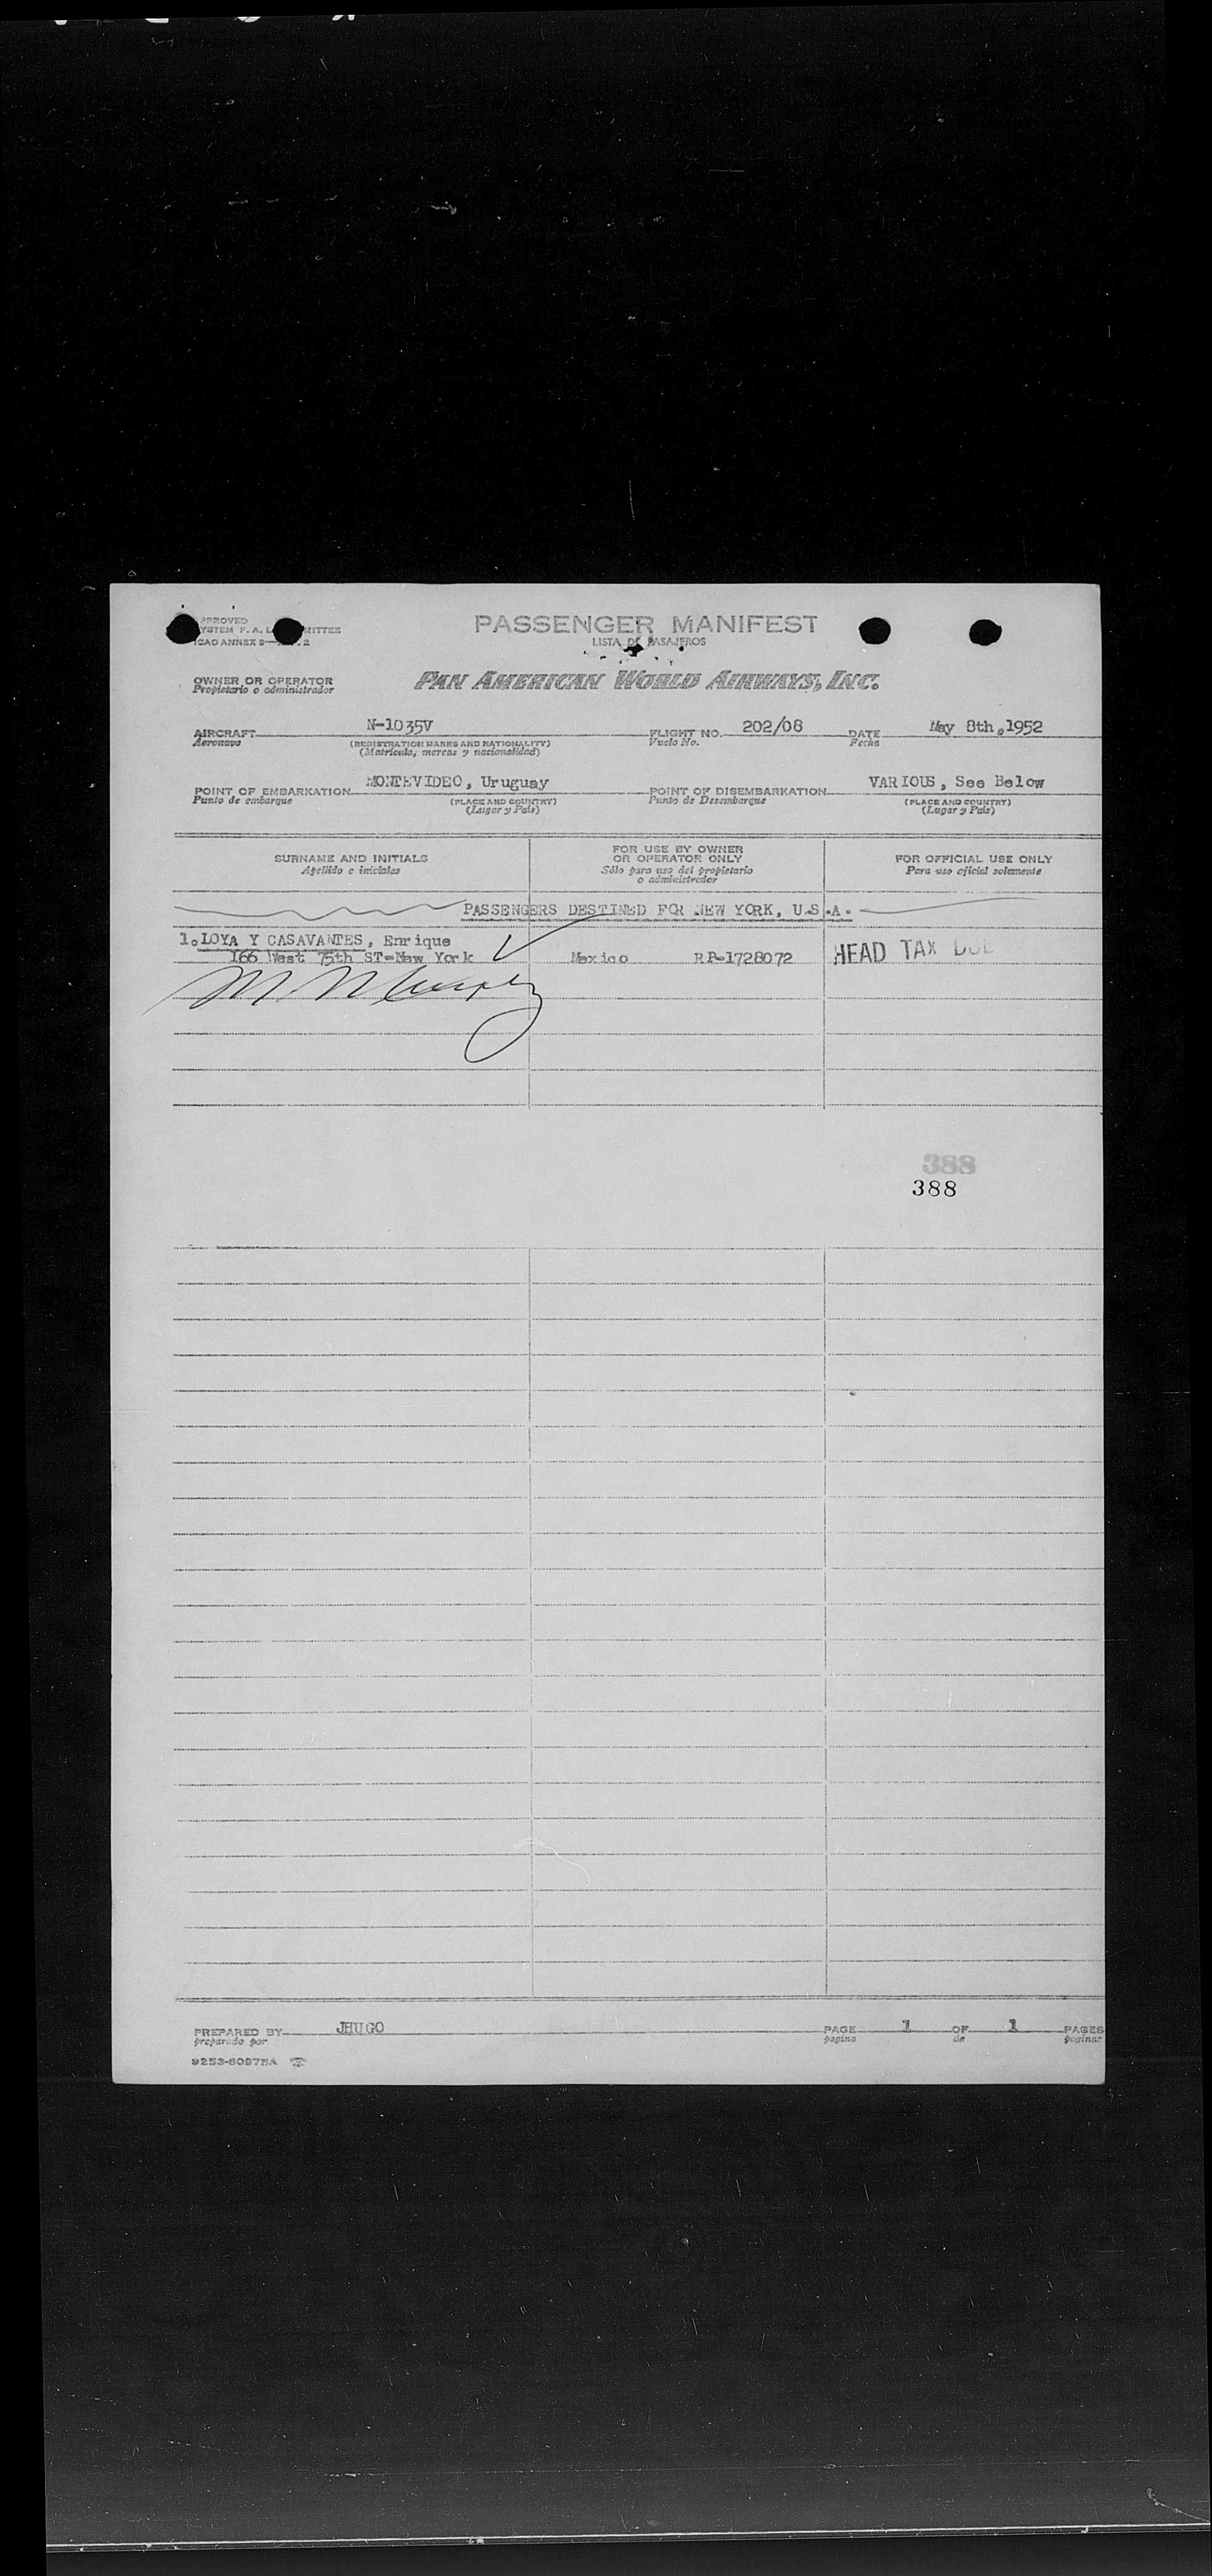 PASSENGER MANIFEST
LISTA DE PASAJEROS
OWNER OR OPERATOR
Propietario o administrador
PAN AMERICAN WORLD AIRWAYS, INC.
AIRCRAFT N-1035V FLIGHT NO. 202/08 DATE May 8th,1952
Aeronave (REGISTRATION MARKS AND NATIONALITY) Vuelo No. Fecha
(Matricula, marcas y nacionalidad)
POINT OF EMBARKATION MONTEVIDEO, Uruguay POINT OF DISEMBARKATION VARIOUS, See Below
Punto de embarque (PLACE AND COUNTRY) Punto de Desembarque (PLACE AND COUNTRY)
(Lugar y País) (Lugar y País)
SURNAME AND INITIALS
Apellido e iniciales
FOR USE BY OWNER
OR OPERATOR ONLY
Sólo para uso del propietario
o administrador
FOR OFFICIAL USE ONLY
Para uso oficial solamente
PASSENGERS DESTINED FOR NEW YORK, U.S.A.
1. LOYA Y CASAVANTES, Enrique
166 West 75th ST-New York Mexico RP-1728072 HEAD TAX DUE
388
388
PREPARED BY JHUGO PAGE 1 OF 1 PAGES
preparado por pagina de paginas